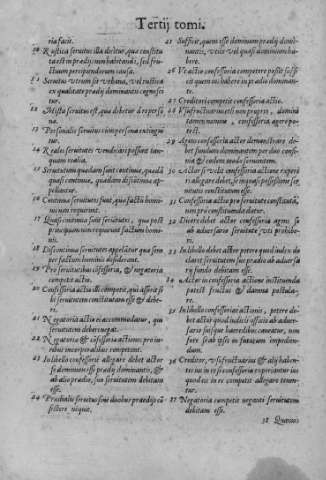 Tertij tomi.
ria facit.
10 Rustica seruitus illa dicitur, que constitu
ta est in prædijs non habitandi, sed fru
ctuum percipiendorum causa.
11 Seruitus vtrum sit vrbana, vel rustica
ex qualitate prædij dominantis cognosci
tur.
12 Mista seruitus est, que debetur à re perso
næ.
13 Personalis seruitus cum persona extingui
tur.
14 Reales seruitutes vendi aut possunt tan
quam realia.
15 Seruitutum quædam sunt continuæ, quædã
quasi continuæ, quædam discontinuæ ap
pellantur.
16 Continuæ seruitutes sunt, que factũ homi
num non requirunt.
17 Quasi continuæ sunt seruitutes, que post
principium non requirunt factum homi
nis.
18 Discontinua seruitutes appellatur que sem
per factum hominis desiderant.
19 Pro seruitutibus confessoria, & negatoria
competit actio.
20 Confessoria actio illi competit, qui asserit si
bi seruitutem constitutam esse & debe
re.
21 Negatoria actio ei accommodatur, qui
seruitutem debere negat.
22 Negatoria & cõfessoria actiones pro iu
ribus incorporalibus competunt.
23 In libello confessoriæ allegare debet actor
se dominum esse prædij dominantis, &
ab alio prædio, sibi seruitutem debitam
esse.
24 Prædialis seruitus sine duobus prædijs cõ
sistere nequit.
25 Sufficit, quem esse dominum prædij domi
nantis, vtile vel quasi dominium ha
bere.
26 Vt actio confessoria competere possit suffi
cit quem ius habere in prædio dominan
te.
27 Creditori competit confessoria actio.
28 Vsufructuarius etsi non proprio, domini
tamen nomine, confessoria agere po
test.
29 Agens confessoria actor demonstrare de
bet fundum dominantem per duo confi
nia & eodem modo seruientem.
30 Actor si velit confessoria actione experi
ri allegare debet, se in quasi possessione ser
uitutis constitutum esse.
31 Confessoria actio pro seruitute constituta,
non pro constituenda datur.
32 Dicere debet actor confessoria agens se
ab aduersario seruitute vti prohibe
ri.
33 In libello debet actor petere quod iudex de
claret seruitutem suo prædio ab aduersa
rij fundo debitam esse.
34 Actor in confessoria actione instituenda
potest fructus & damna postula
re.
35 In libello confessoriæ actionis, petere de
bet actor quod iudicis officio ab aduer
sario suisque hæredibus caueatur, non
fore se ab ipsis in futurum impedien
dum.
36 Creditor, vsufructuarius & alij haben
tes ius in re si confessoria experiantur ius
quod eis in re competit allegare tenen
tur.
37 Negatoria competit neganti seruitutem
debitam esse.
38 Quanuis